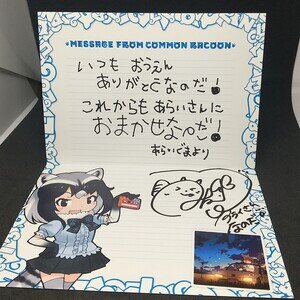 MESSAGE FROM COMMON RACOON
いつも おうえん
ありがとうなのだ!
これからも あらいさんに
おまかせなのだ!
あらいぐまより